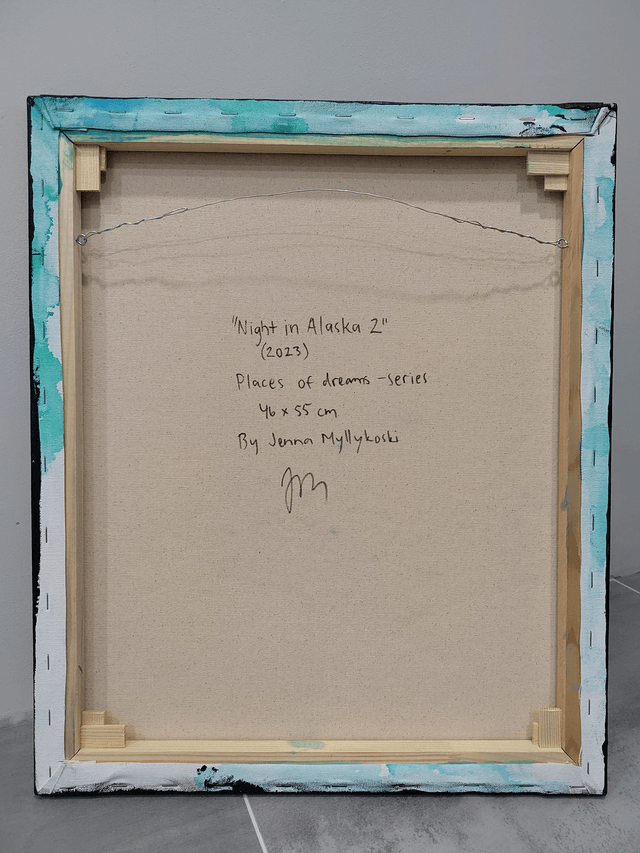 "Night in Alaska 2"
(2023)
Places of dreams -series
46 x 55 cm
By Jenna Myllykoski
JM